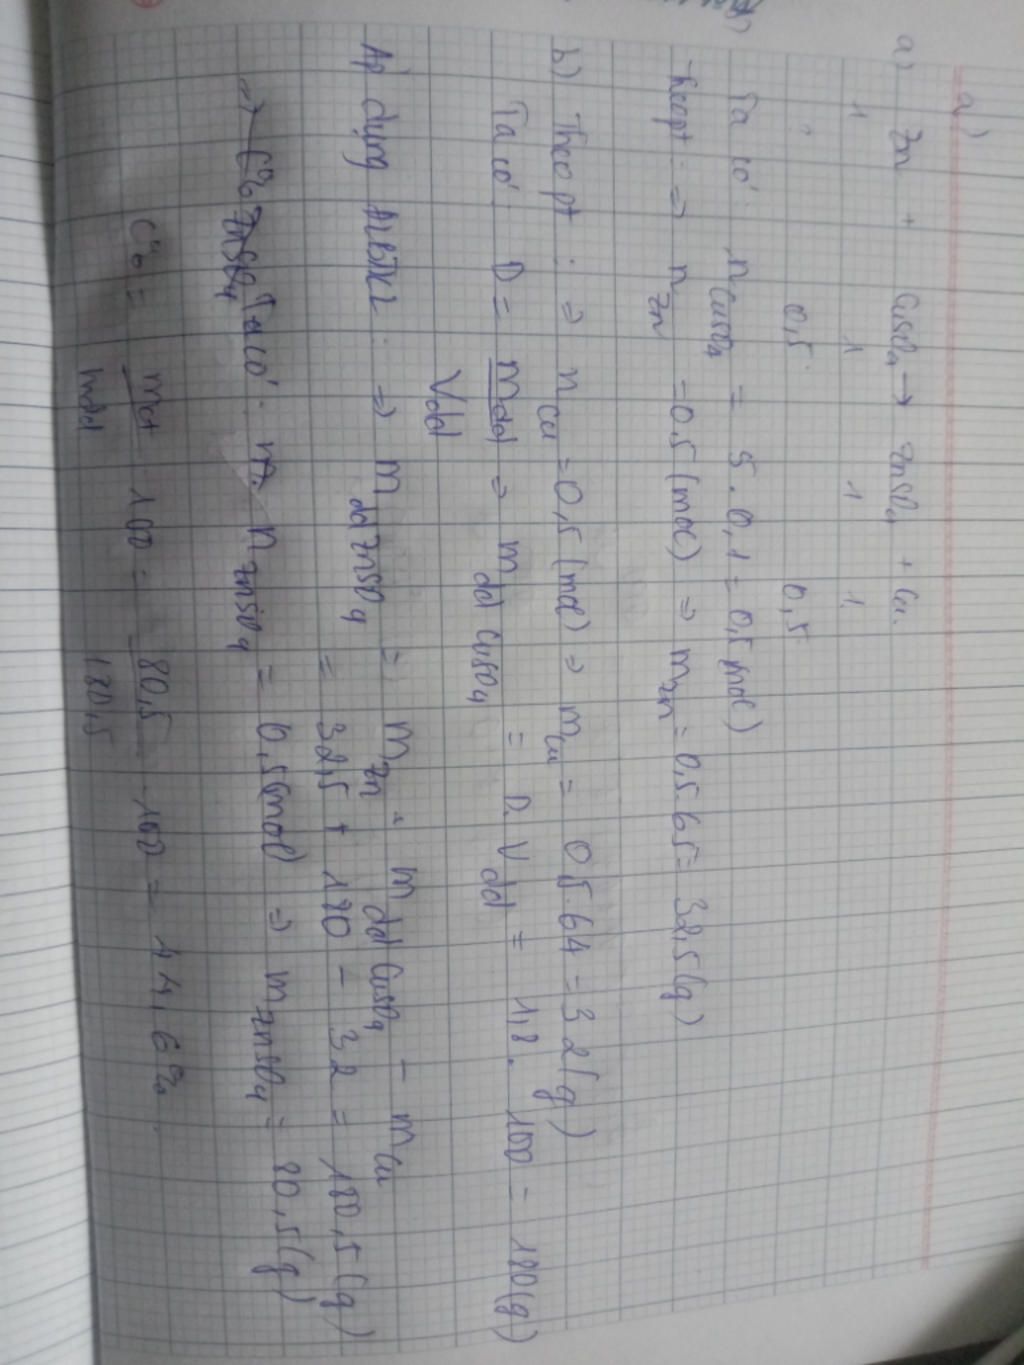 a)
a) Zn + CuSO4 → ZnSO4 + Cu.
1 1 1 1
0,5 0,5
Ta có: nCuSO4 = 5.0,1 = 0,5 mol)
Theo pt: ⇒ nZn = 0,5 (mol) ⇒ mZn = 0,5.65 = 32,5 (g)
b) Theo pt: ⇒ nCu = 0,5 (mol) ⇒ mCu = 0,5.64 = 32 (g)
Ta có D = mdd/Vdd ⇒ mdd CuSO4 = D.Vdd = 1,8.100 = 180 (g)
Áp dụng ĐLBTKL: ⇒ mdd ZnSO4 = mZn + mdd CuSO4 - mCu
= 32,5 + 180 - 32 = 180,5 (g)
→ C% ZnSO4 Ta có: nZnSO4 = 0,5 (mol) ⇒ mZnSO4 = 80,5 (g)
C% = mct/mdd . 100 = 80,5/180,5 . 100 = 44,6%